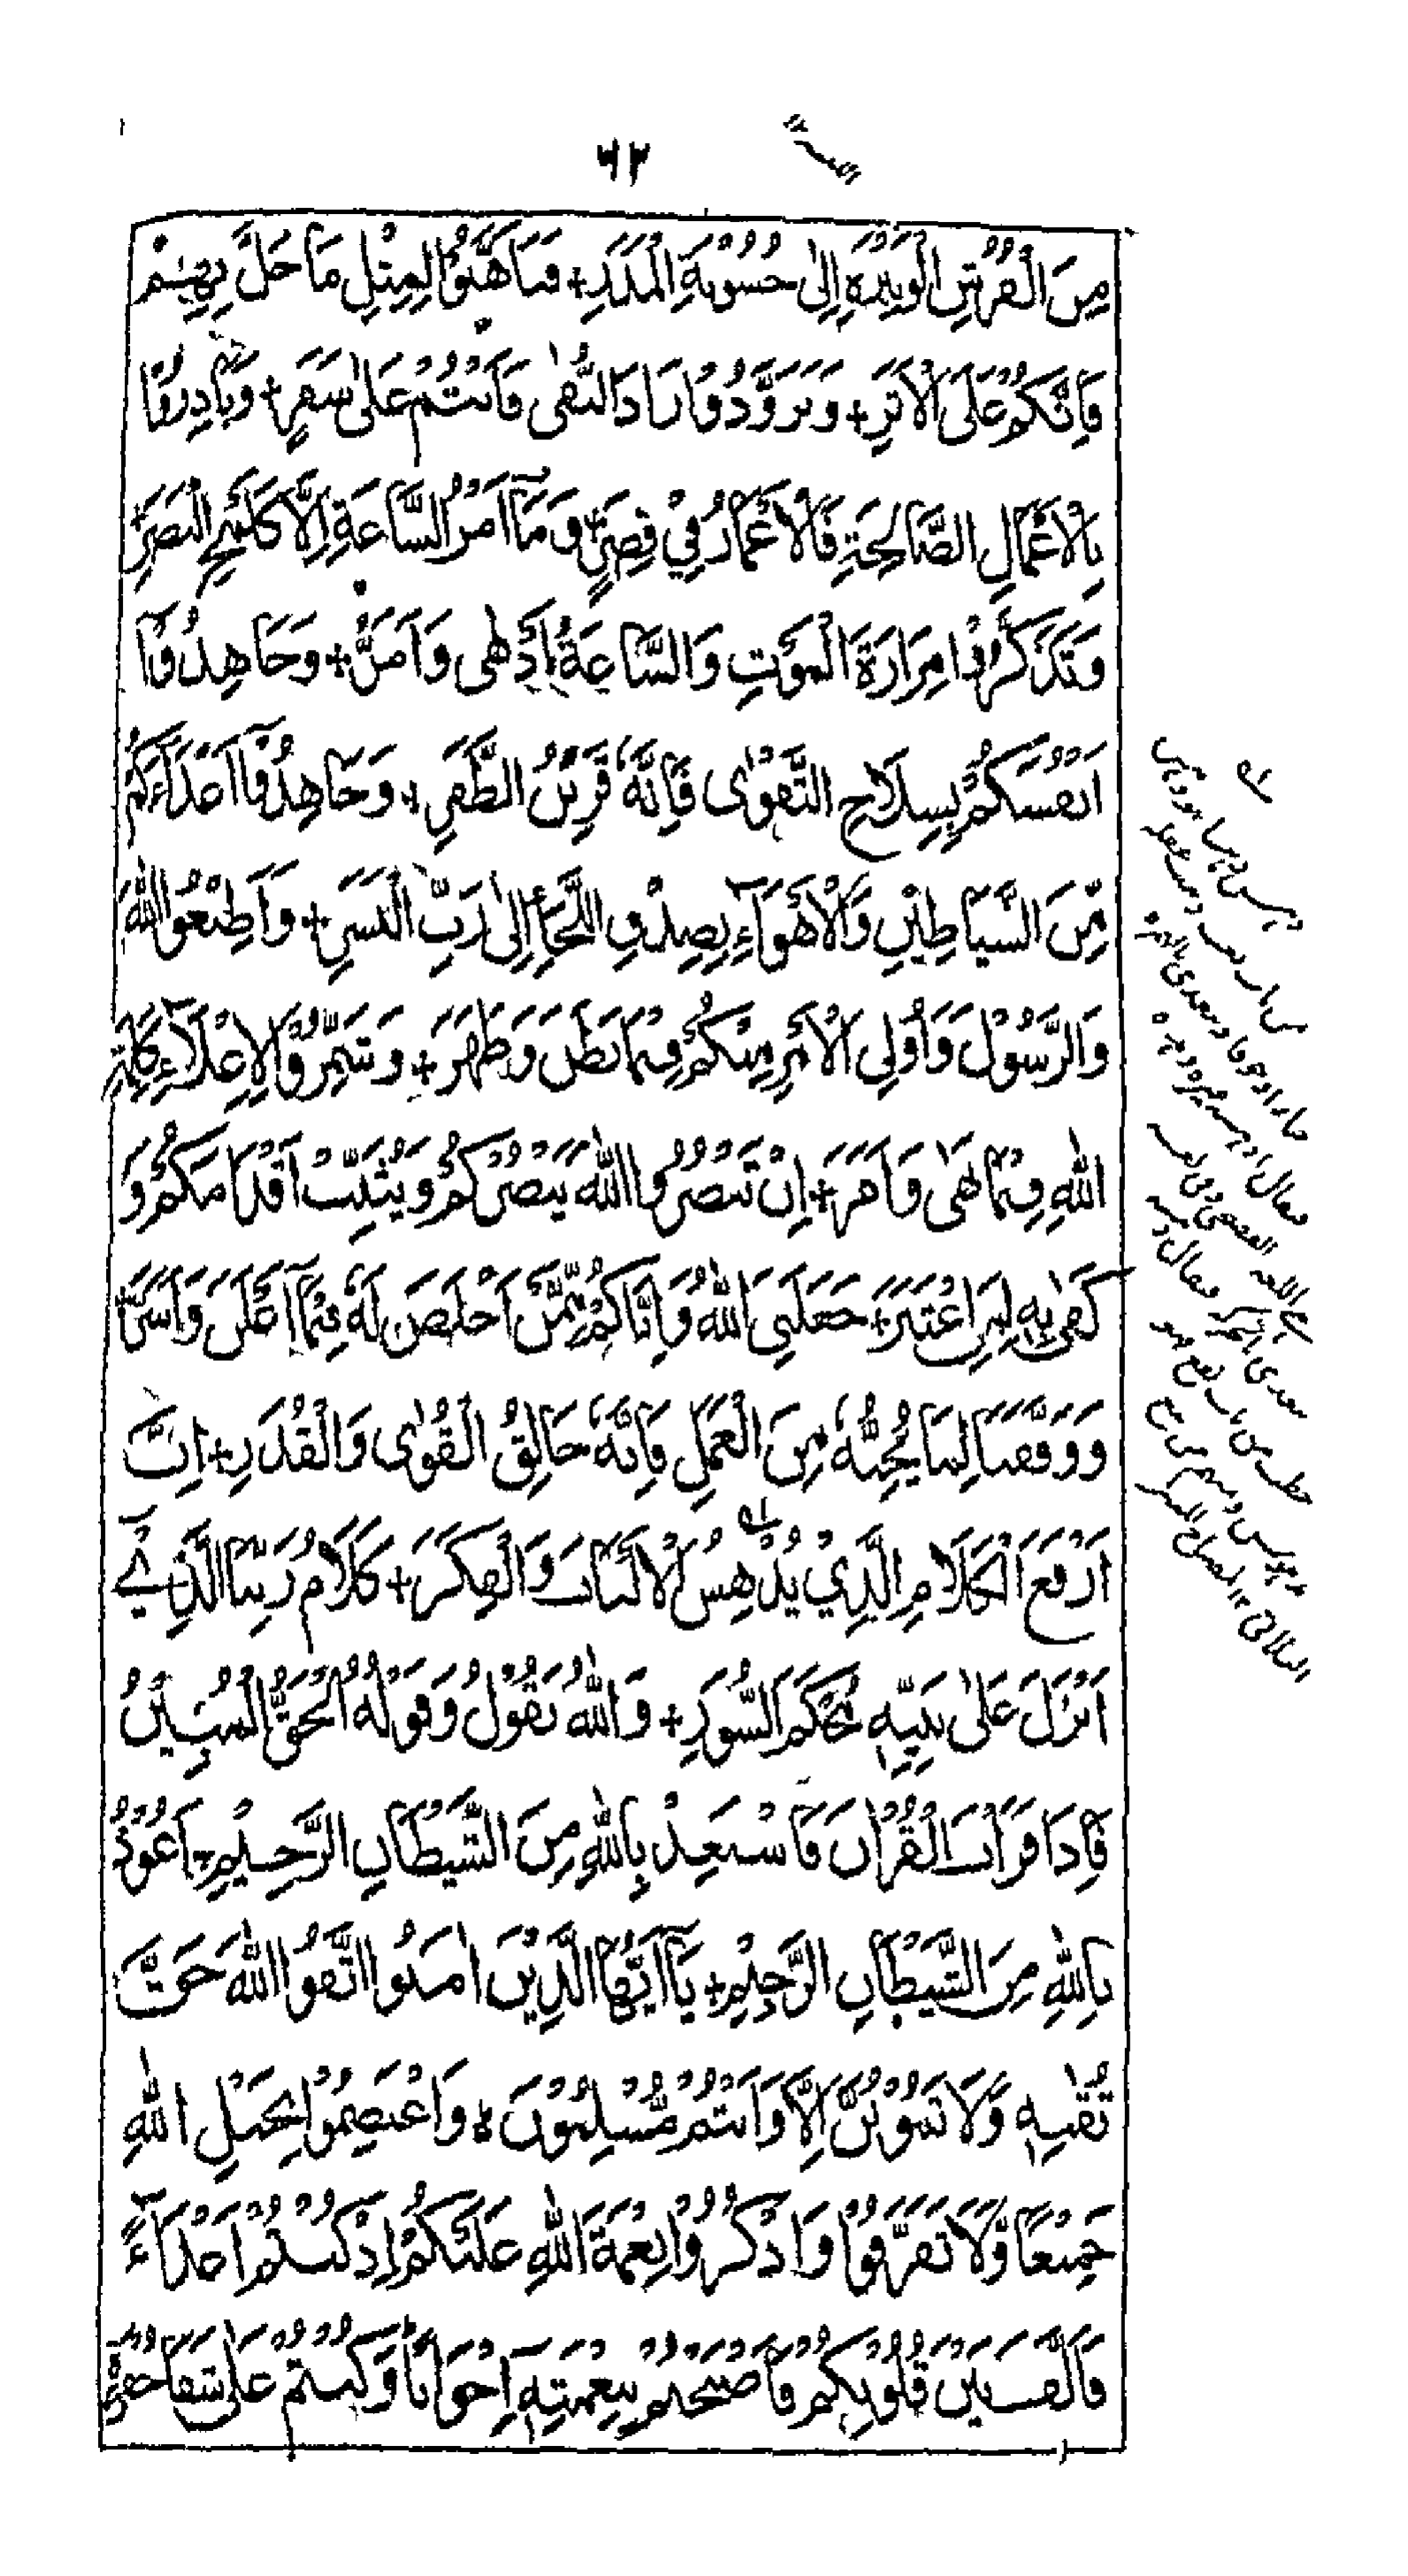 ٦٢
مِنَ الْفُرُشِ الْوَثِيْرَةِ إِلىٰ خُشُوْنَةِ الْمَدَرِ + فَتَأَهَّبُوْا لِمِثْلِ مَا حَلَّ بِهِمْ
فَاِنَّكُمْ عَلَى الْاَثَرِ + وَتَزَوَّدُوْا زَادَ التُّقىٰ فَاَنْتُمْ عَلىٰ سَفَرٍ + وَبَادِرُوْا
بِالْاَعْمَالِ الصَّالِحَةِ فَالْاَعْمَارُ فِيْ قِصَرٍ + وَمَآ اَمْرُ السَّاعَةِ اِلَّا كَلَمْحِ الْبَصَرِ +
وَتَذَكَّرُوْا مِرَارَةَ الْمَوْتِ وَالسَّاعَةُ اَدْهٰى وَاَمَرُّ + وَجَاهِدُوْا
اَنْفُسَكُمْ بِسِلَاحِ التَّقْوٰى فَاِنَّهٗ قَرِيْنُ الظَّفَرِ + وَجَاهِدُوْا اَعْدَآءَكُمْ
مِّنَ الشَّيَاطِيْنِ وَالْاَهْوَآءِ بِصِدْقِ اللَّجَإِ اِلىٰ رَبِّ الْبَشَرِ + وَاَطِيْعُوا اللّٰهَ
وَالرَّسُوْلَ وَاُولِى الْاَمْرِ مِنْكُمْ فِيْمَا بَطَنَ وَظَهَرَ + وَشَمِّرُوْا لِاِعْلَآءِ كَلِمَةِ
اللّٰهِ فِيْمَا نَهٰى وَاَمَرَ + اِنْ تَنْصُرُوا اللّٰهَ يَنْصُرْكُمْ وَيُثَبِّتْ اَقْدَامَكُمْ وَ
كَفٰى بِهٖ لِمَنِ اعْتَبَرَ + جَعَلَنِيَ اللّٰهُ وَاِيَّاكُمْ مِّمَّنْ اَخْلَصَ لَهٗ فِيْمَآ اَعْلَنَ وَاَسَرَّ +
وَوَفَّقَنَا لِمَا يُحِبُّهٗ مِنَ الْعَمَلِ فَاِنَّهٗ خَالِقُ الْقُوٰى وَالْقُدَرِ + اِنَّ
اَرْفَعَ الْكَلَامِ الَّذِيْ يُدْهِشُ الْاَلْبَابَ وَالْفِكَرَ + كَلَامُ رَبِّنَا الَّذِيْ
اَنْزَلَ عَلىٰ نَبِيِّهٖ مُحْكَمَ السُّوَرِ + وَاللّٰهُ يَقُوْلُ وَقَوْلُهُ الْحَقُّ الْمُبِيْنُ
فَاِذَا قَرَاْتَ الْقُرْاٰنَ فَاسْتَعِذْ بِاللّٰهِ مِنَ الشَّيْطَانِ الرَّجِيْمِ + اَعُوْذُ
بِاللّٰهِ مِنَ الشَّيْطَانِ الرَّجِيْمِ + يَآ اَيُّهَا الَّذِيْنَ اٰمَنُوا اتَّقُوا اللّٰهَ حَقَّ
تُقٰىتِهٖ وَلَا تَمُوْتُنَّ اِلَّا وَاَنْتُمْ مُّسْلِمُوْنَ ۵ وَاعْتَصِمُوْا بِحَبْلِ اللّٰهِ
جَمِيْعًا وَّلَا تَفَرَّقُوْا وَاذْكُرُوْا نِعْمَةَ اللّٰهِ عَلَيْكُمْ اِذْ كُنْتُمْ اَعْدَآءً
فَاَلَّفَ بَيْنَ قُلُوْبِكُمْ فَاَصْبَحْتُمْ بِنِعْمَتِهٖ اِخْوَانًا وَكُنْتُمْ عَلىٰ شَفَا حُفْرَةٍ